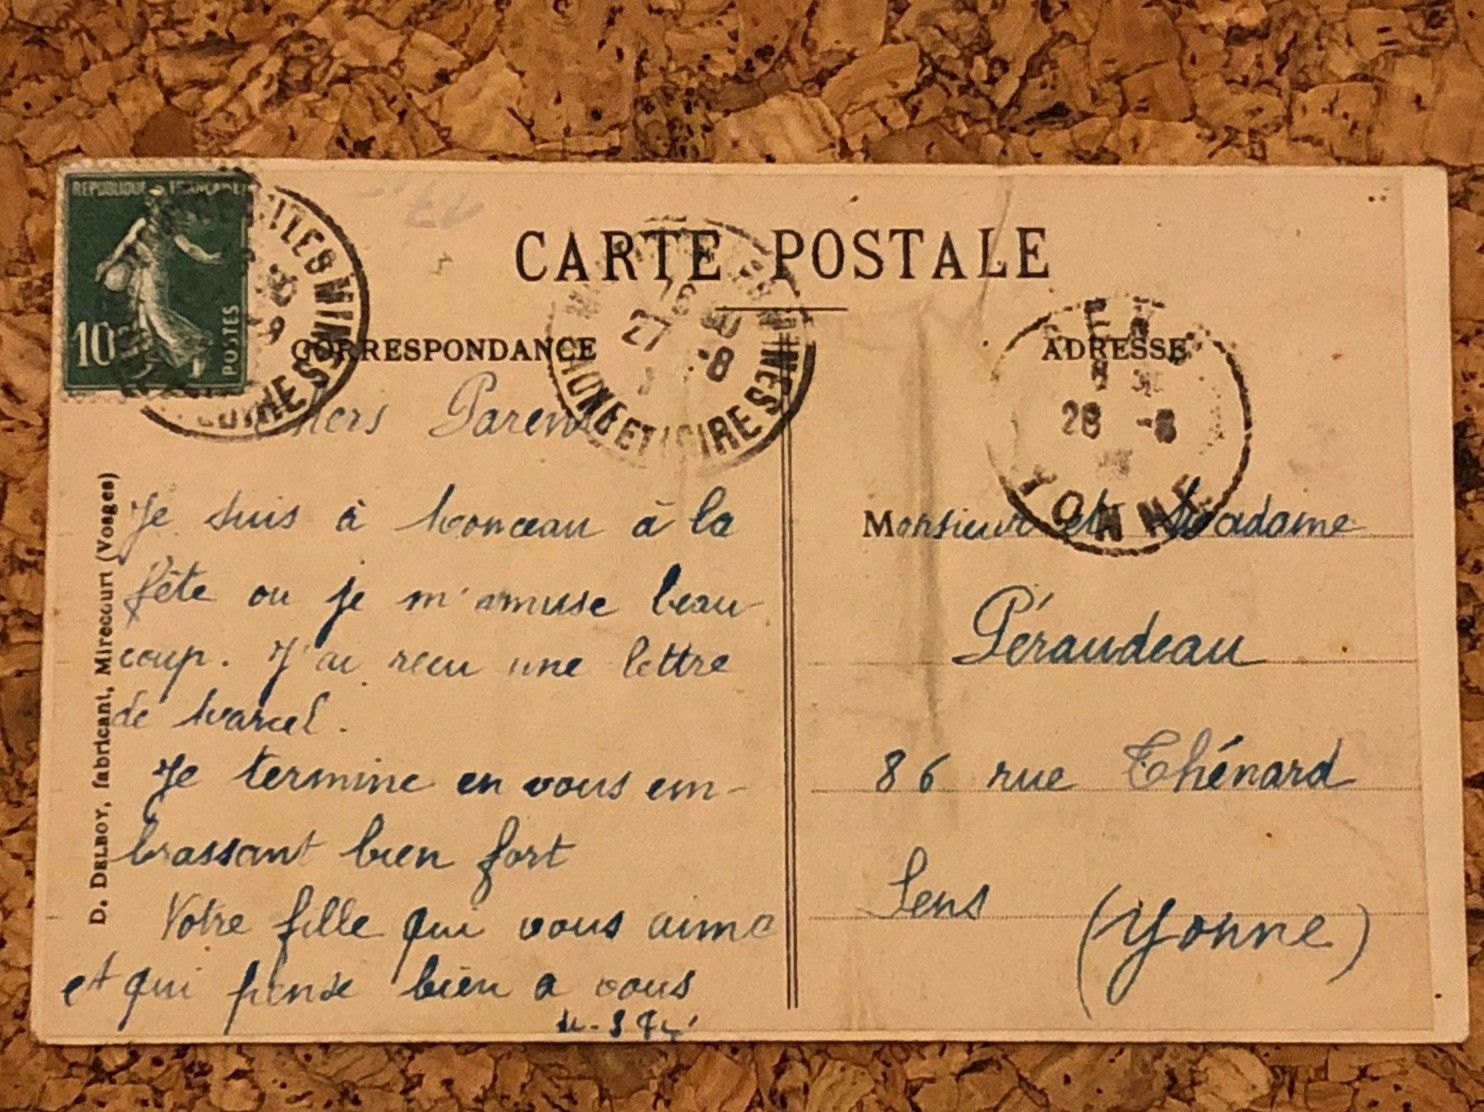 REPUBLIQUE FRANÇAISE
10
POSTES
CARTE POSTALE
CORRESPONDANCE
ADRESSE
MINES
SAONE ET LOIRE
27 -8
MINES
28 -8
YONNE
D. DELBOY, fabricant, Mirecourt (Vosges)
Chers Parents
Je suis à Monceau à la
fête ou je m'amuse beau-
coup. J'ai recu une lettre
de Marcel.
Je termine en vous em-
brassant bien fort
Votre fille qui vous aime
et qui pense bien a vous
Monsieur et Madame
Péraudeau
86 rue Thénard
Sens (Yonne)